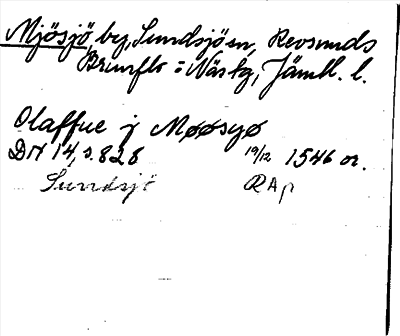 Mjösjö, by, Sundsjö sn, Revsunds
Brunflo o Näs tg, Jämtl. l.
Olaffue j Møøsyø
DN 14, s. 828 19/12 1546 or.
Sundsjö RAp